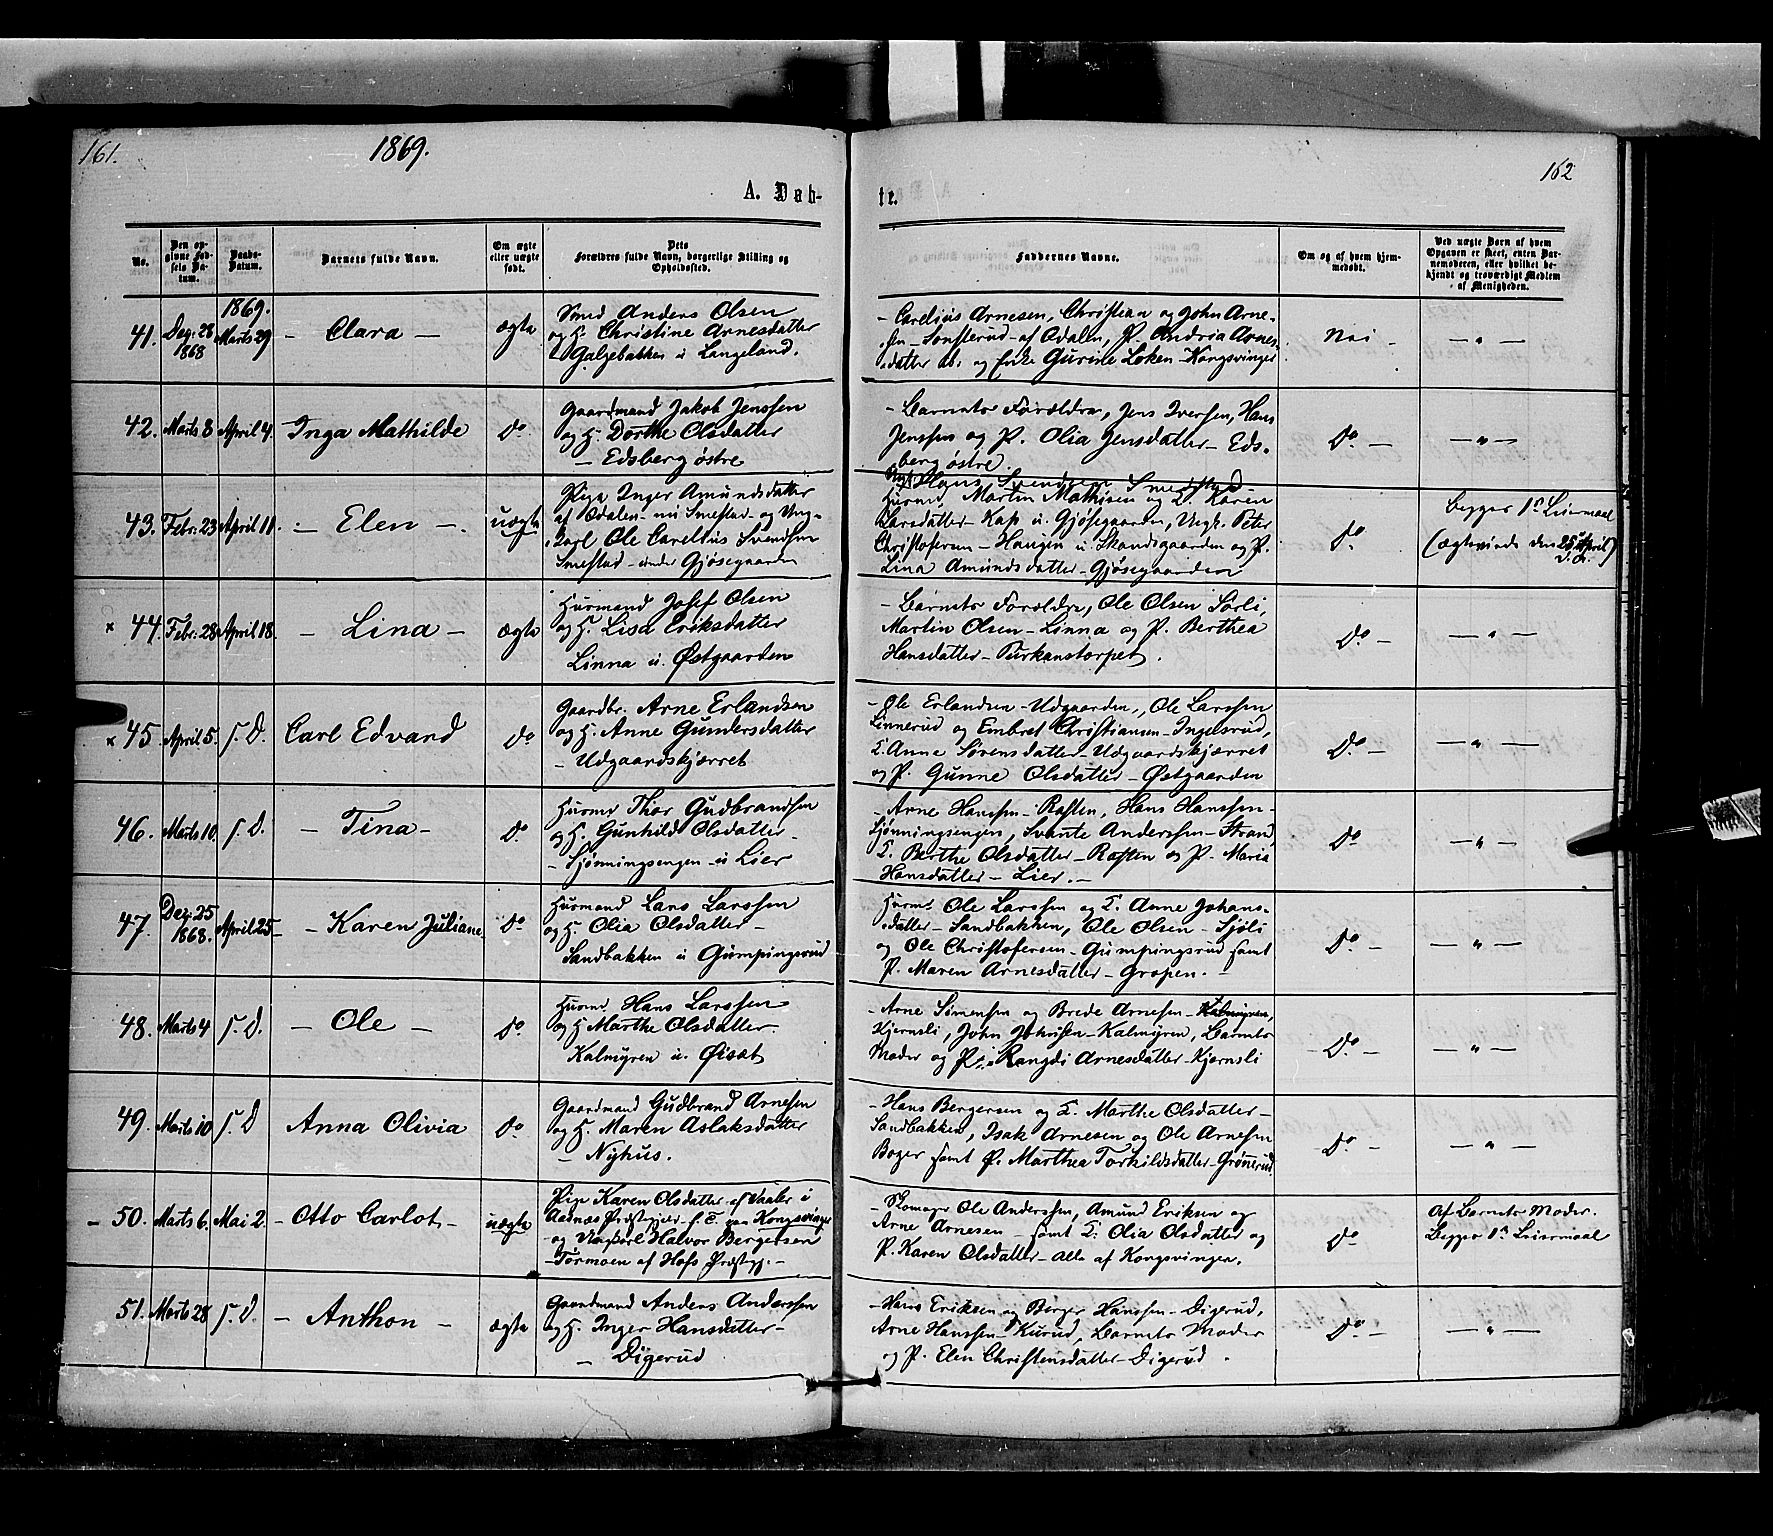 161.
1869.
162
A. Døb-
te.
No.
Den opgivne Fødsels Datum.
Daabs-Datum.
Barnets fulde Navn.
Om ægte eller uægte født.
Dets Forældres fulde Navn, borgerlige Stilling og Opholdssted.
Faddernes Navne.
Om og af hvem hjemmedøbt.
Ved uægte Børn af hvem Opgaven er skeet, enten Barnemoderen, eller hvilket bekjendt og troværdigt Medlem af Menigheden.
41. Dez. 28 1868 1869. Marts 29 – Clara – ægte
Smed Anders Olsen
og H. Christine Arnesdatter
Galgebakken u Langeland.
– Carelius Arnesen, Christian og John Arne-
sen – Sonsterud – af Odalen, P. Andria Arnes-
datter ib. og Enke Gurine Løken – Kongsvinger
Nei – – " –
42. Marts 8 April 4. Inga Mathilde Do
Gaardmand Jakob Jenssen
og H. Dorthe Olsdatter
– Edsberg østre
– Barnets Forældre, Jens Iversen, Hans
Jenssen og P. Olia Jensdatter – Eds-
berg østre.
Do – – " –
43. Febr. 23 April 11. – Elen – uægte
Pige Inger Amundsdatter
af Odalen – nu Smestad – og Ung-
karl Ole Carelius Svendsen
Smestad – under Gjøsegaarden
Ungk. Hans Svendsen Smestad –
Husmd Martin Mathisen og K. Karen
Larsdatter – Kap u. Gjøsegaarden, Ungk. Peter
Christofersen – Haugen u. Skandsgaarden og P.
Lina Amundsdatter – Gjøsegaarden
Do –
begges 1ste Leiermaal
(ægteviede den 25 April)
x 44. Febr. 28 April 18. – Lina – ægte
Husmand Josef Olsen
og H. Lisa Eriksdatter
Linna u. Østgaarden
– Barnets Forældre, Ole Olsen Sorli,
Martin Olsen – Linna og P. Berthea
Hansdatter – Purkanstorpet.
Do – – " –
x 45. April 5. s. D. Carl Edvard Do
Gaardbr. Arne Erlandsen
og H. Anne Gundersdatter
– Udgaardskjærret
– Ole Erlandsen – Udgaarden, Ole Larssen
Linnerud og Embret Christiansen – Ingelsrud,
K. Anne Sørensdatter – Udgaardskjærret
og P. Gunne Olsdatter – Østgaarden
Do – – " –
46. Marts 10. s. D. – Tina – Do
Husmd Thor Gudbrandsen
og H. Gunhild Olsdatter –
– Sjønningsengen u Lier
– Arne Hanssen – Rasten, Hans Hanssen –
Sjønningsengen, Svante Anderssen – Strand,
K. Berthe Olsdatter – Rasten og P. Maria
Hansdatter – Lier. –
Do – " –
47. Dez. 25 1868. April 25 – – Karen Juliane – Do
Husmand Lars Larssen
og H. Olia Olsdatter –
Sandbakken u Gumpingsrud
Husm. Ole Larssen og K. Anne Johans-
datter – Sandbakken, Ole Olsen – Sjøli
og Ole Christofersen – Gumpingsrud samt
P. Maren Arnesdatter – Gropen. –
Do – – " –
48. Marts 4 s. D. – Ole – Do
Husmd Hans Larssen
og H. Marthe Olsdatter –
Kalmyren u. Øiset
– Arne Simensen og Brede Arnesen – Kalmyren,
Kjernsli, John Johnsen – Kalmyren, Barnets
Moder og P. Rangdi Arnesdatter – Kjernsli
– Do – – " –
49. Marts 10 s. D Anna Olivia Do
Gaardmand Gudbrand Arnesen
og H. Maren Aslaksdatter
– Nyhus.
– Hans Bergersen og K. Marthe Olsdatter –
Sandbakken, Isak Arnesen og Ole Arnesen
Boger samt P. Marthea Torkildsdatter – Grønerud
Do – – " –
– 50. Marts 6. Mai 2. – Otto Carlot – uægte
Pige Karen Olsdatter af Vaaler i
Aasnes Præstegjeld f. T. paa Kongsvinger
og Ungkarl Halvor Bergersen
– Tormoen af Hofs Præstgj. –
– Skomager Ole Anderssen, Amund Eriksen og
Arne Arnesen – samt K. Olia Olsdatter og
P. Karen Olsdatter – alle af Kongsvinger.
Do
Af Barnets Moder.
Begges 1ste Leiermaal
51. Marts 28 s. D. – Anthon – ægte
Gaardmand Anders Anderssen
og H. Inger Hansdatter –
– Digerud
– Hans Eriksen og Børger Hanssen – Digerud,
Arne Hanssen – Kurud, Barnets Moder
og P. Elen Christensdatter – Digerud.
Do – – " –